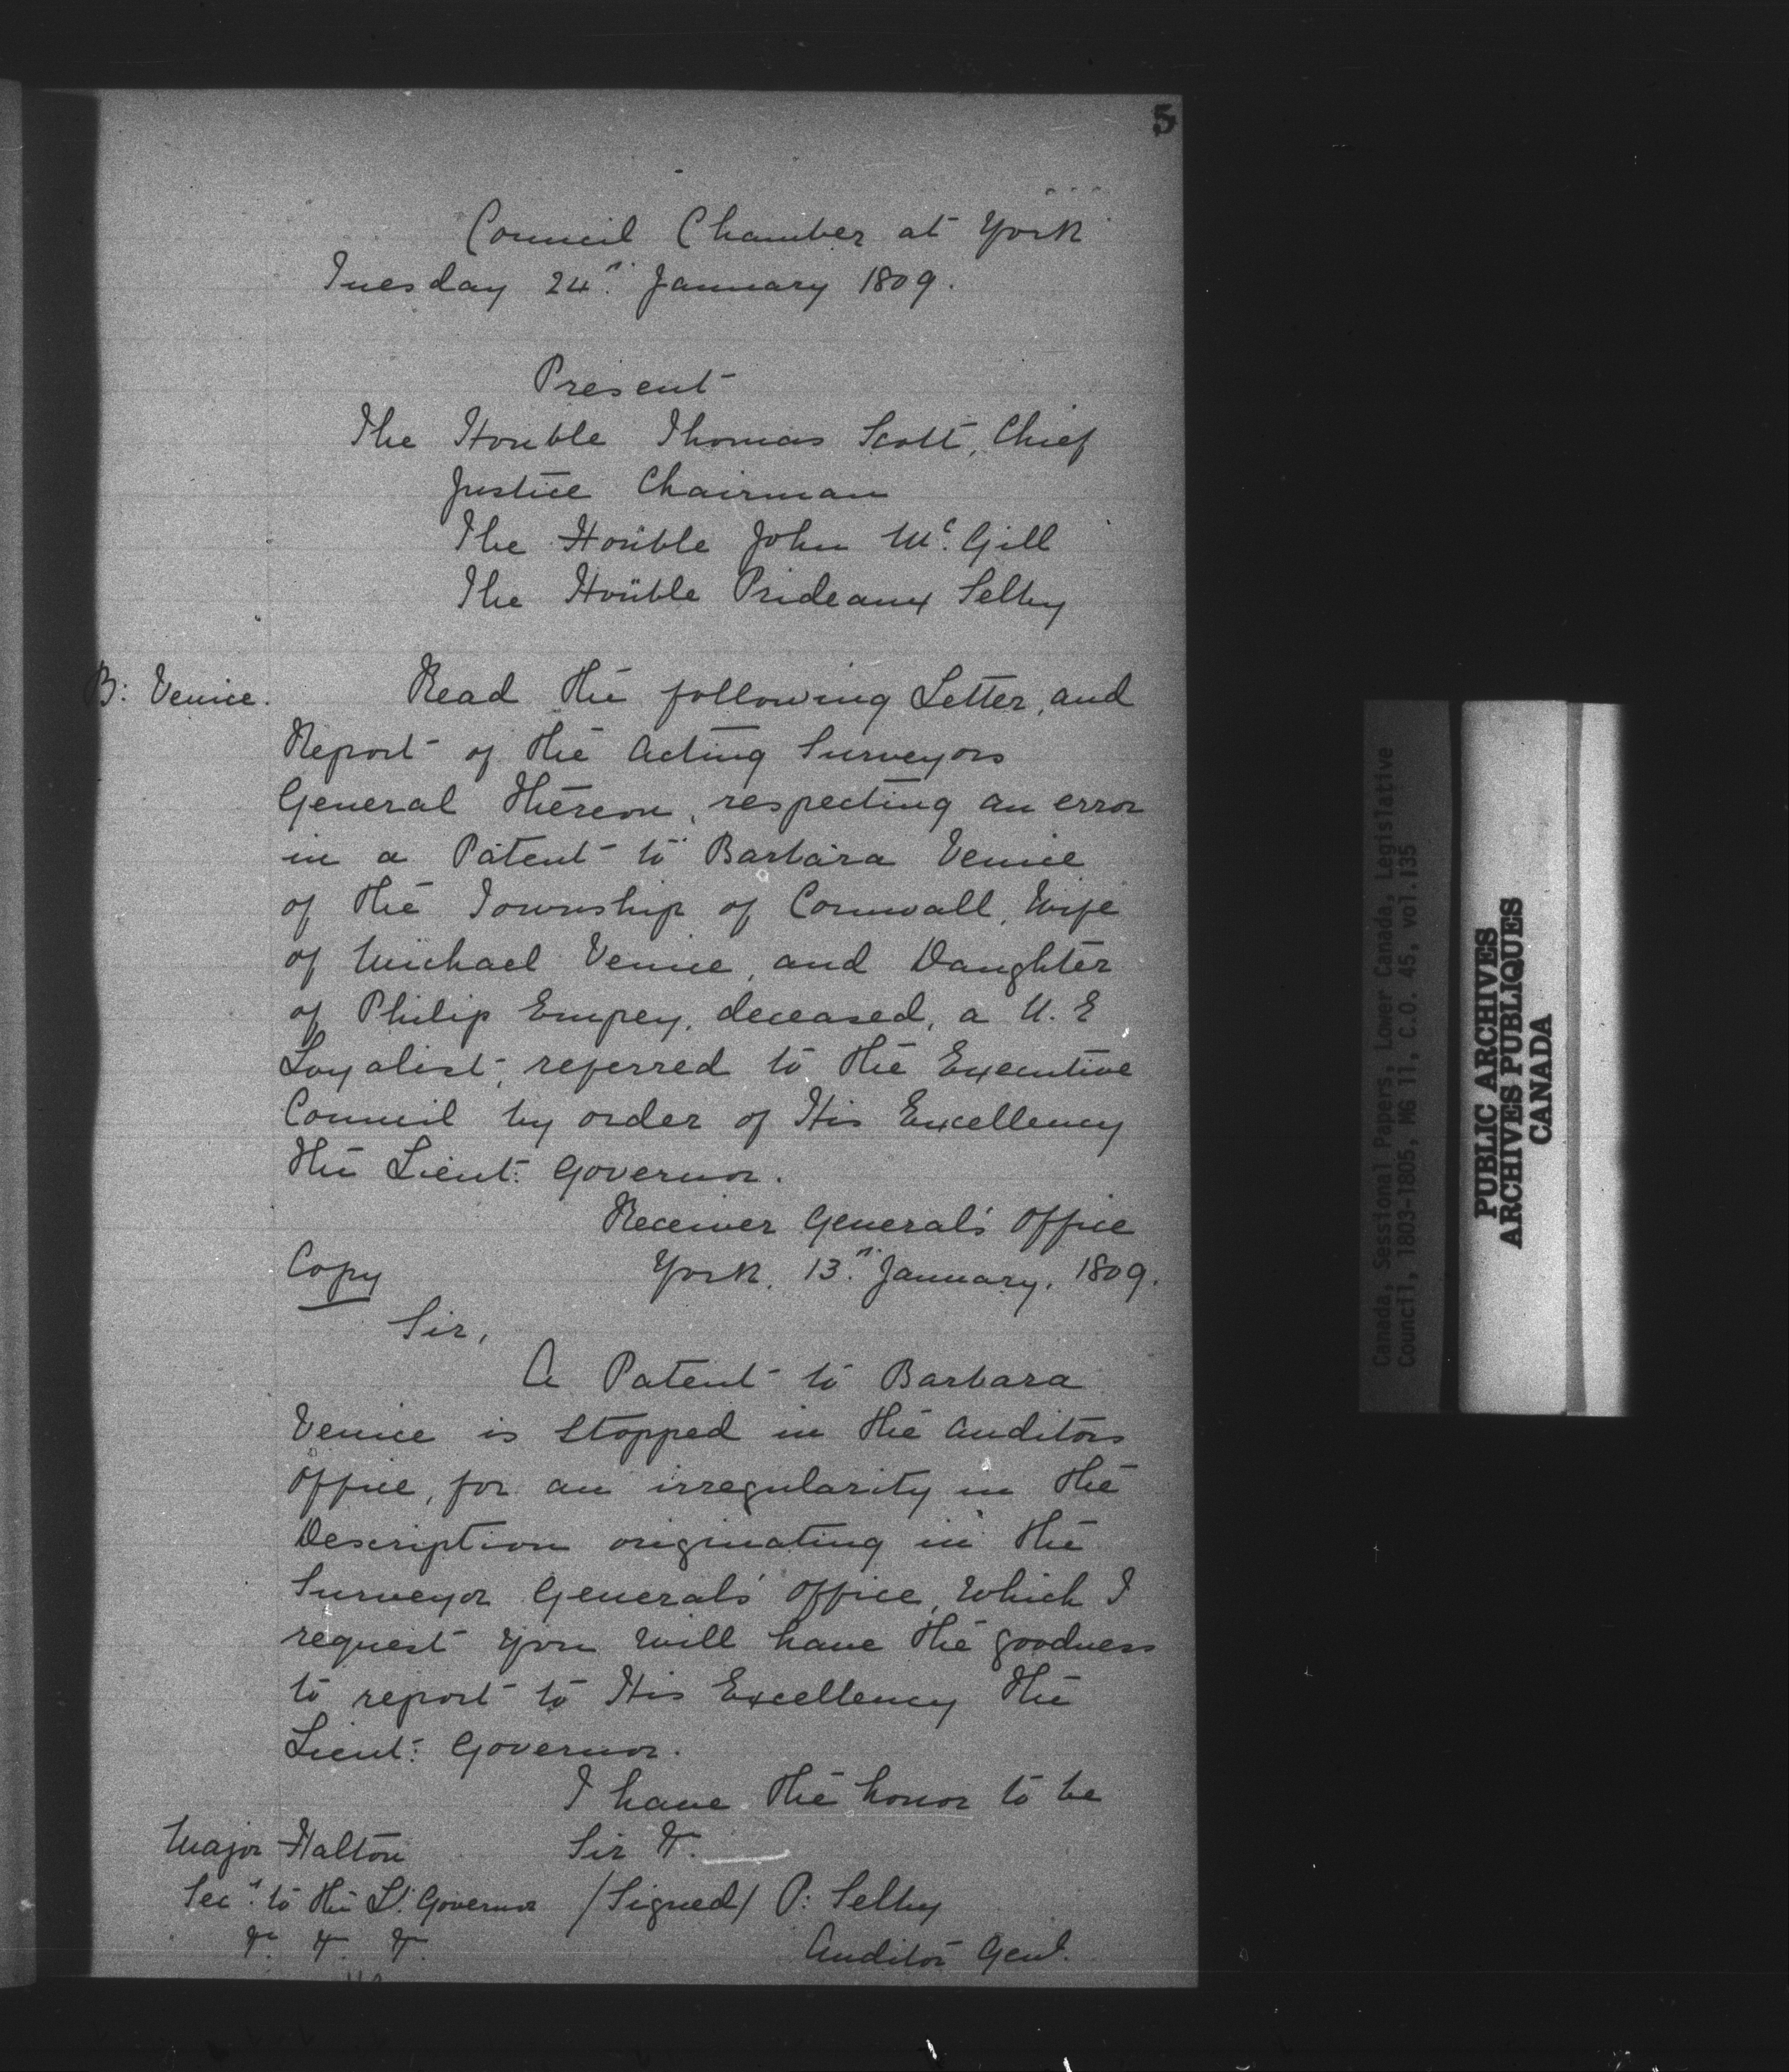 5
Council Chamber at York
Tuesday 24th January 1809.
Present
The Honble Thomas Scott, Chief
Justice Chairman
The Honble John McGill
The Honble Prideaux Selby
B: Venice.
Read the following Letter, and
Report of the Acting Surveyors
General thereon, respecting an error
in a Patent to Barbara Venice
of the Township of Cornwall, Wife
of Michael Venice, and Daughter
of Philip Empey, deceased, a U. E
Loyalist, referred to the Executive
Council by order of His Excellency
the Lieut: Governor.
Receiver General's Office
Copy York, 13th January, 1809.
Sir,
A Patent to Barbara
Venice is stopped in the Auditors
Office, for an irregularity in the
Description originating in the
Surveyor General's Office, Which I
request you will have the goodness
to report to His Excellency the
Lieut: Governor.
I have the honor to be
Major Halton Sir &.
Secy. to the Lt. Governor /Signed/ P: Selby
&. &. &. Auditor Genl.
Canada, Sessional Papers, Lower Canada, Legislative
Council, 1803-1805, MG 11, C.O. 45, vol.135
PUBLIC ARCHIVES
ARCHIVES PUBLIQUES
CANADA